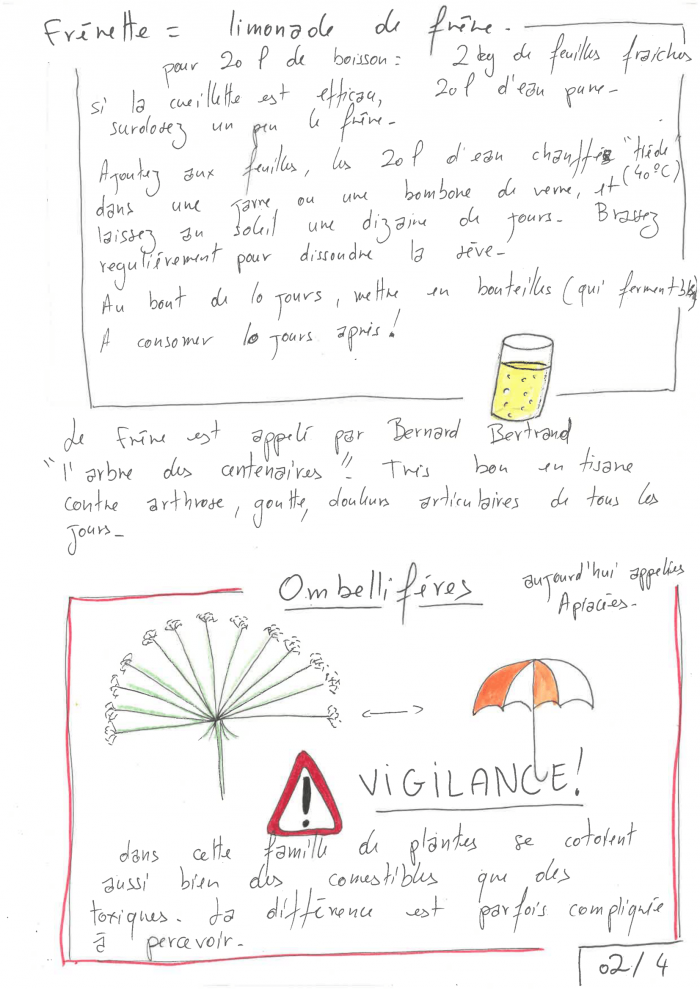 Frênette = limonade de frêne.
pour 20 l de boisson : 2 kg de feuilles fraiches
si la cueillette est efficau, 20 l d'eau pure.
surdosez un peu le frêne.
Ajoutez aux feuilles, les 20 l d'eau chauffée "tiède"
(40°C)
dans une jarre ou une bombone de verre, et
laissez au soleil une dizaine de jours. Brassez
regulièrement pour dissoudre la sève.
Au bout de 10 jours, mettre en bouteilles (qui ferment
A consomer 10 jours après !
Le Frêne est appelé par Bernard Bertrand
"l'arbre des centenaires". Très bon en tisane
contre arthrose, goutte, douleurs articulaires de tous les
jours.
Ombellifères
aujourd'hui appelées
Apiacées.
VIGILANCE!
dans cette famille de plantes se cotoient
aussi bien des comestibles que des
toxiques. La différence est parfois compliquée
à percevoir.
02/4